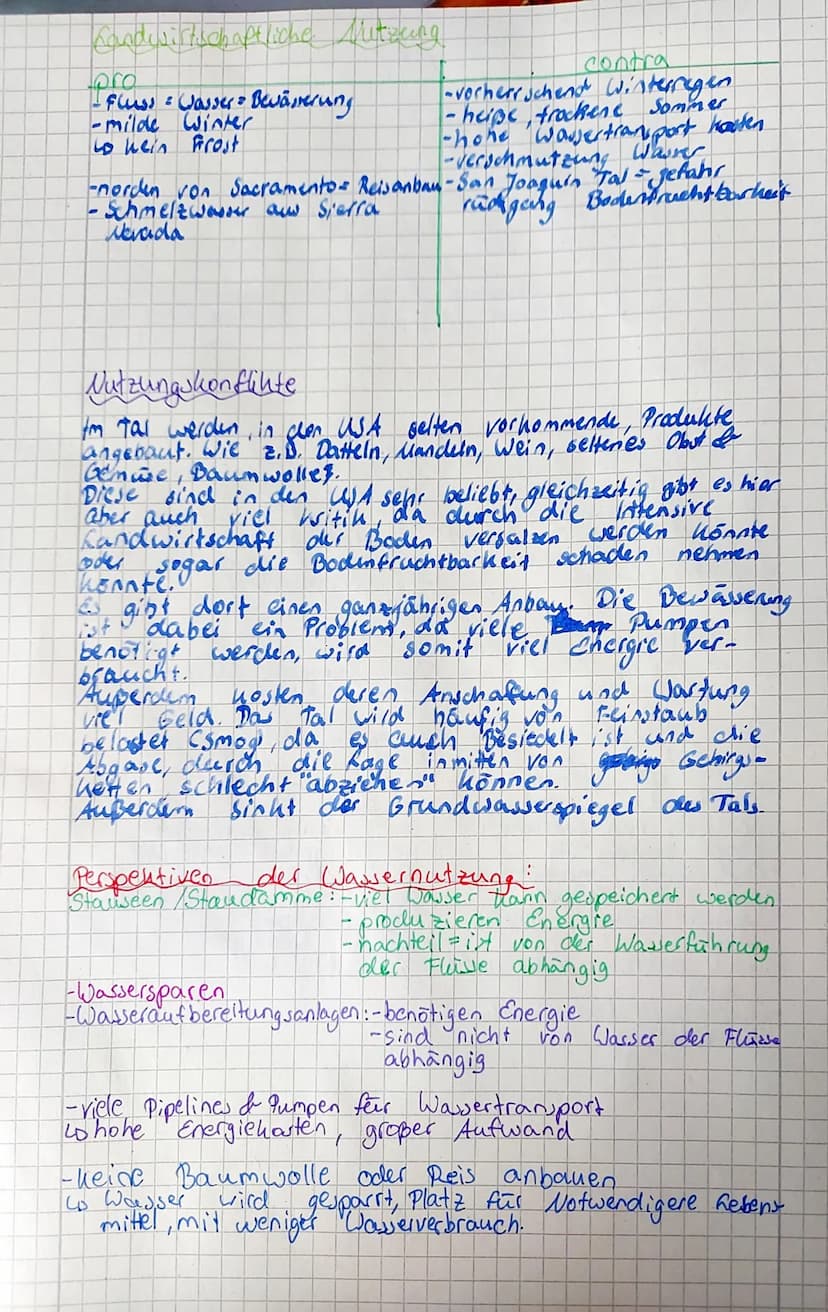 Landwirtschaftliche Nutzung
pro
- Fluss = Wasser = Bewässerung
- milde Winter
↳ kein Frost
- norden von Sacramento = Reisanbau
- Schmelzwasser aus Sierra
Nevada
contra
- vorherrschend Winterregen
- heiße, trockene Sommer
- hohe Wassertransport kosten
- verschmutzung Wasser
- San Joaquin Tal = gefahr
rückgang Bodenfruchtbarkeit
Nutzungskonflikte
Im Tal werden, in den USA selten vorkommende, Produkte
angebaut. Wie z.B. Datteln, Mandeln, Wein, seltenes Obst &
Gemüse, Baumwolle.
Diese sind in den USA sehr beliebt, gleichzeitig gibt es hier
aber auch viel kritik, da durch die Intensive
Landwirtschaft der Boden versalzen werden könnte
oder sogar die Bodenfruchtbarkeit schaden nehmen
könnte.
Es gibt dort einen ganzjährigen Anbau. Die Bewässerung
ist dabei ein Problem, da viele Pumpen
benötigt werden, wird somit viel Energie ver-
braucht.
Außerdem kosten deren Anschaffung und Wartung
viel Geld. Das Tal wird häufig von Feinstaub
belastet (smog), da es auch Besiedelt ist und die
Abgase, durch die Lage inmitten von Gebirgs-
ketten, schlecht "abziehen" können.
Außerdem sinkt der Grundwasserspiegel des Tals.
Perspektiven der Wassernutzung:
Stauseen / Staudämme: - viel Wasser kann gespeichert werden
- produzieren Energie
- nachteil = ist von der Wasserführung
der Flüsse abhängig
- Wassersparen
- Wasseraufbereitungsanlagen: - benötigen Energie
- sind nicht von Wasser der Flüsse
abhängig
- viele Pipelines & Pumpen für Wassertransport
↳ hohe Energiekosten, großer Aufwand
- keine Baumwolle oder Reis anbauen
↳ Wasser wird gesparrt, Platz für Notwendigere Lebens
mittel, mit weniger Wasserverbrauch.